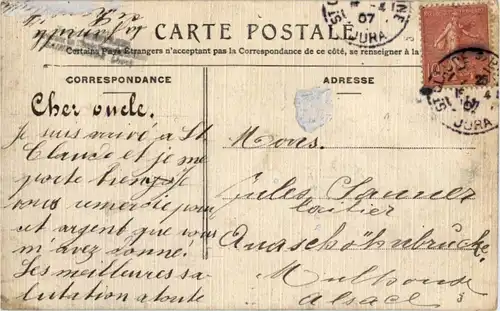 à la famille
CARTE POSTALE
Certains Pays Étrangers n'acceptent pas la Correspondance de ce côté, se renseigner à la
CORRESPONDANCE
ADRESSE
07
JURA
ST CLAUDE
JURA
Cher oncle.
Je suis arrivé à St
Claude et je me
porte bien. Je
vous remercie pour
cet argent que vous
m'avez donné.
Les meilleures sa-
lutation a toute
Mons.
Jules
laitier
Mulhouse
Alsace